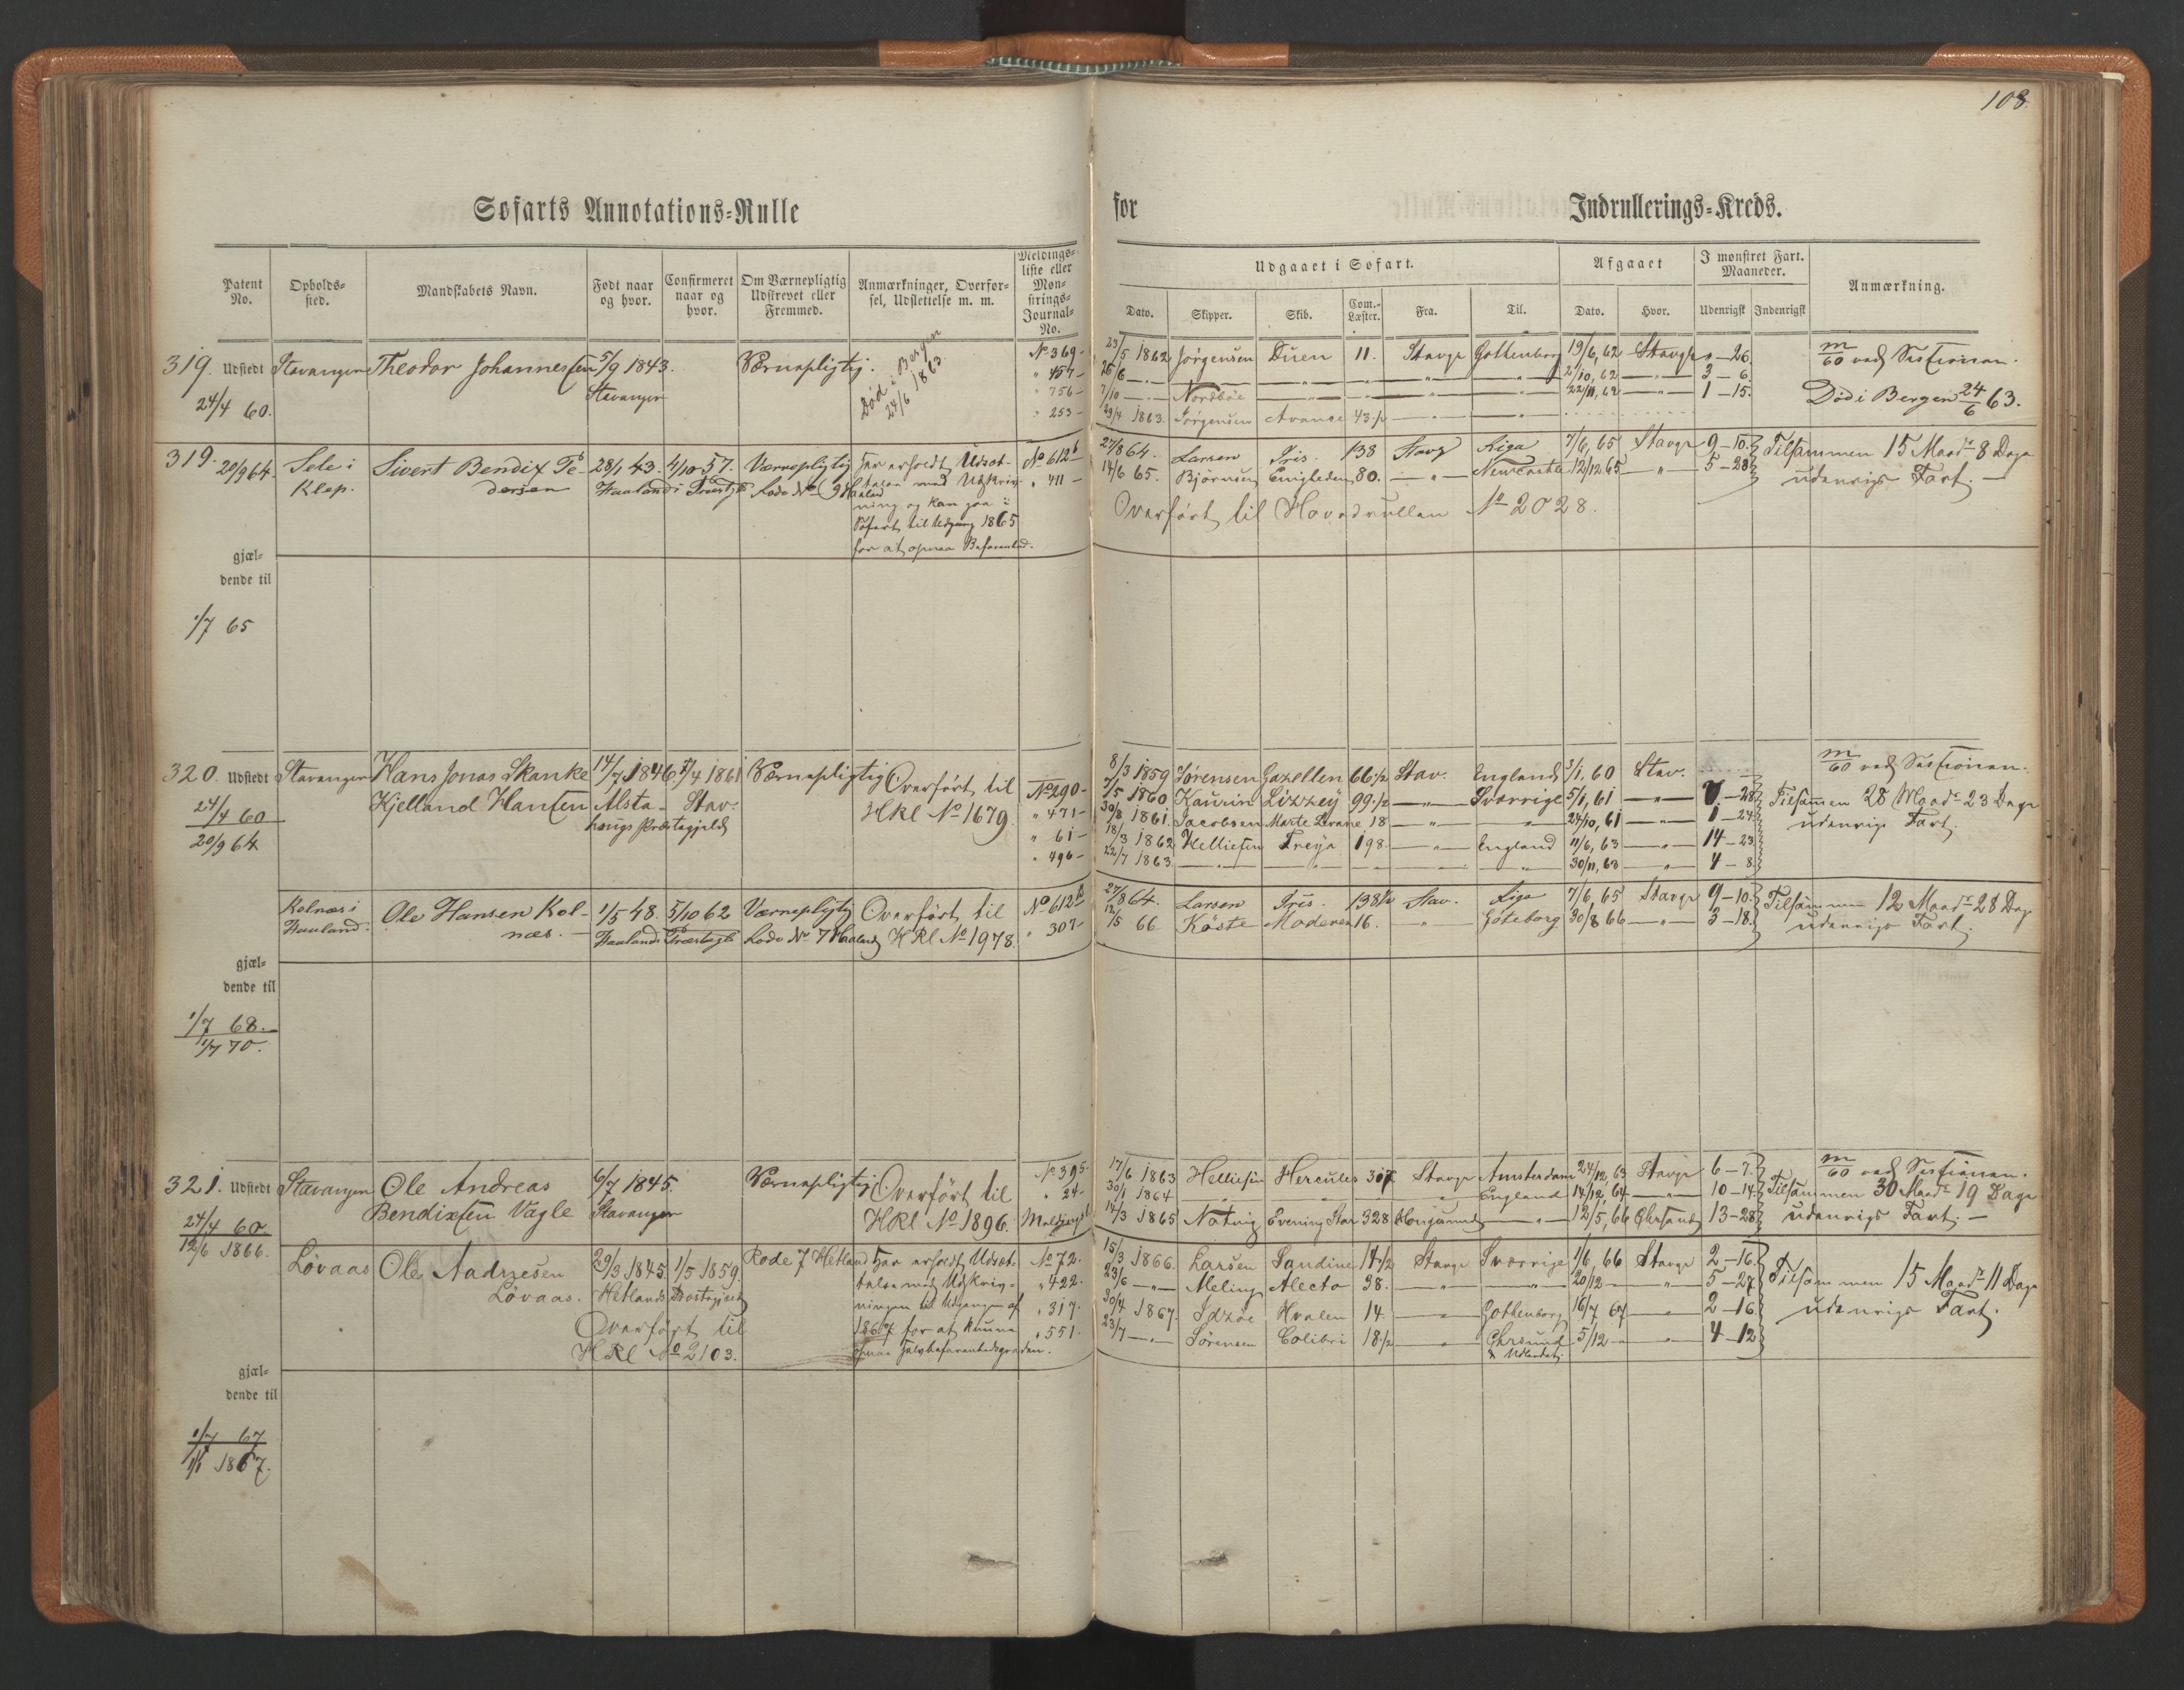 108.
Søfarts Annotations-Rulle
for
Indrullerings-Kreds.
Patent No.
Opholds-sted.
Mandskabets Navn.
Født naar og hvor.
Confirmeret naar og hvor.
Om Værnepligtig Udskrevet eller Fremmed.
Anmærkninger, Overfør-sel, Udslettelse m. m.
Meldings-liste eller Mønstrings-Journal-No.
Udgaaet i Søfart.
Dato.
Skipper.
Skib.
Com.-Læster.
Fra.
Til.
Afgaaet
Dato.
Hvor.
I mønstret Fart. Maaneder.
Udenrigsk
Indenrigsk
Anmærkning.
319. Udstedt Stavanger Theodor Johannessen 5/9 1843. Værnepligtig. Død i Bergen No 369 -
24/4 60. Stavanger 24/6 1863. " 457 -
" 756 -
" 253 -
23/5 1862 Jørgensen Duen 11. Stavgr Gottenborg 19/6, 62 Stavgr " - 26. m/60 ved Sessionen.
26/6 - " - 2/10, 62 - " - 3 - 6.
7/10 - " - Nordbøe 22/11, 62 - " - 1 - 15. Død i Bergen 24/6 63.
29/4 1863. Jørgensen Avance 43 1/2 - " -
319. 20/9 64. Sele i Sivert Bendix Pe- 28/1 43. 4/10 57. Værnepligtig Har erholdt Udsæt- No 612 b
Klep. dersen Haaland i Præstgj. Lode No 9 Haaland telse med Udskriv- " 411 -
ning og kan gaa i
Søfart til Udgang 1865
for at opnaa Befarenhed.
27/8 64. Larsen Iris. 138 Stavg Riga 7/6, 65 Stavgr 9 - 10. Tilsammen 15 Maadr 8 Dage
14/6 65. Bjørnsen Enigheden 80. - " - Newcastle 12/12 65 - " - 5 - 28 udenrigs Fart. -
Overført til Hovedrullen No 2028.
gjæl-
dende til
1/7 65
320. Udstedt Stavanger Hans Jonas Skanke 14/7 1846. 7/4 1861 Værnepligtig Overført til No 290 -
24/4 60 Kjelland Hansen Alsta- Stav. HRl No 1679. " 471 -
20/9 64 haugs Præstegjeld " 61 -
" 496 -
8/3 1859 Sørensen Gazellen 66 1/2 Stav. England 3/1, 60 Stav. m/60 ved Sessionen.
7/5 1860 Kaurin Lizzey 99 1/2 - " - Sverrige 5/1, 61 - " - 7 - 28 Tilsammen 28 Maadr 23 Dage
30/8 1861. Jacobsen Marte Svane 18 - " - 24/10, 61 - " - 1 - 24 udenrigs Fart.
18/3 1862 Helliesen Freya 198 - " - England 11/6, 63 - " - 14 - 23
22/7 1863 - " - 30/11, 63 - " - 4 - 8
Kolnæs i Ole Hansen Kol- 1/5 48. 5/10 62 Værnepligtig Overført til No 612 b
Haaland. næs. - Haalands Præstegj. Lode No 7 Haaland HRl No 1978. " 307 -
27/8 64. Larsen Iris. 138 1/2 Stav. Riga 7/6, 65 Stavgr 9 - 10. Tilsammen 12 Maadr 28 Dage
12/5 66 Køste Moderen 16. - " - Göteborg 30/8 66 - " - 3 - 18. udenrigs Fart.
gjæl-
dende til
1/7 68.
1/7 70.
321. Udstedt Stavanger Ole Andreas 6/7 1845. Værnepligtig Overført til No 395 -
24/4 60. Bendixsen Vagle Stavanger HRl No 1896. " 24 -
12/6 1866.
17/6 1863 Helliesen Hercules 307 Stavgr Amsterdam 24/12, 63 Stavgr 6 - 7. m/60 ved Sessionen.
30/1 1864 " " " England 14/12, 64 - " - 10 - 14. Tilsammen 30 Maadr 19 Dage
14/3 1865 Natvig Evening Star 328 - " - 12/5, 66 Chrsand 13 - 28 udenrigs Fart. -
Løvaas Ole Aadnesen 29/3 1845. 1/5 1859. Rode 7 Hetland Har erholdt Udsæt- No 72.
Løvaas. Hetlands Præstegjeld telse med Udskriv- " 422.
Overført til ningen til Udgangen af " 317.
HRl No 2103. 1867 for at kunne " 551.
opnaa Halvbefarenhedsgraden.
15/3 1866. Larsen Sandine 14 1/2 Stavgr Sverrige 1/6, 66 Stavgr 2 - 16. Tilsammen 15 Maadr 11 Dage
23/6 - " - Meling Alecto 38. " " 20/12 - " 5 - 27 udenrigs Fart.
30/4 1867. Idzøe Hvalen 14. " Gothenborg 16/7 67 " 2 - 16
23/7 - " - Sørensen Colibri 18 1/2 " Chrsund 5/12 - " 4 - 12
& Udlandet.
gjæl-
dende til
1/7 67
1/1 1867.